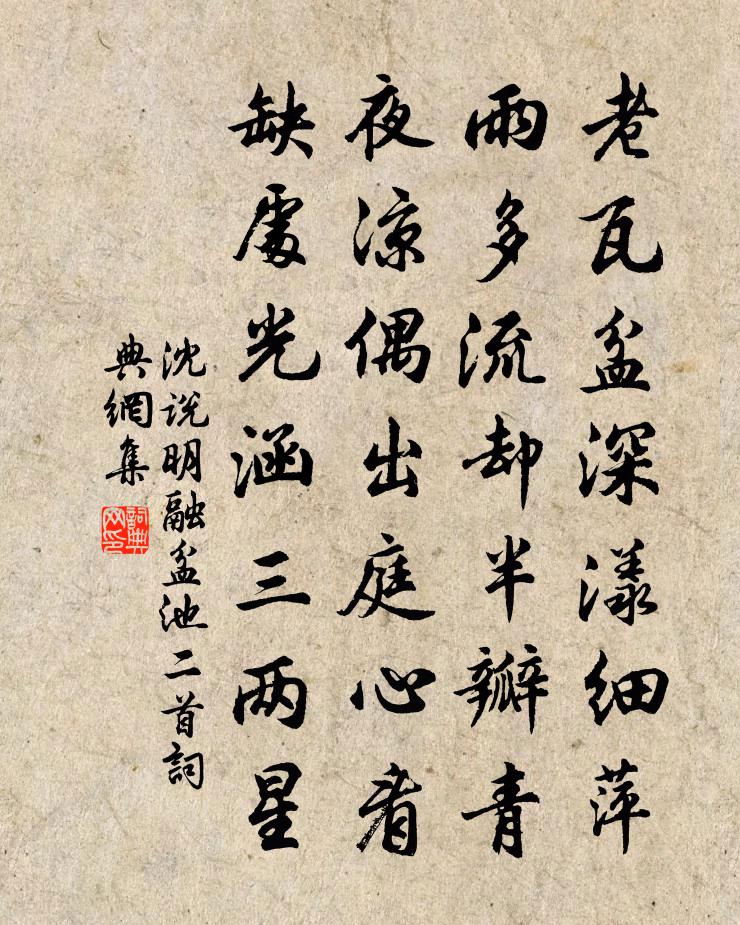 老瓦盆深漾細萍
雨多流却半瓣青
夜涼偶出庭心看
缺處光涵三两星
沈说明融盆池二首詞
典網集
詞典网印